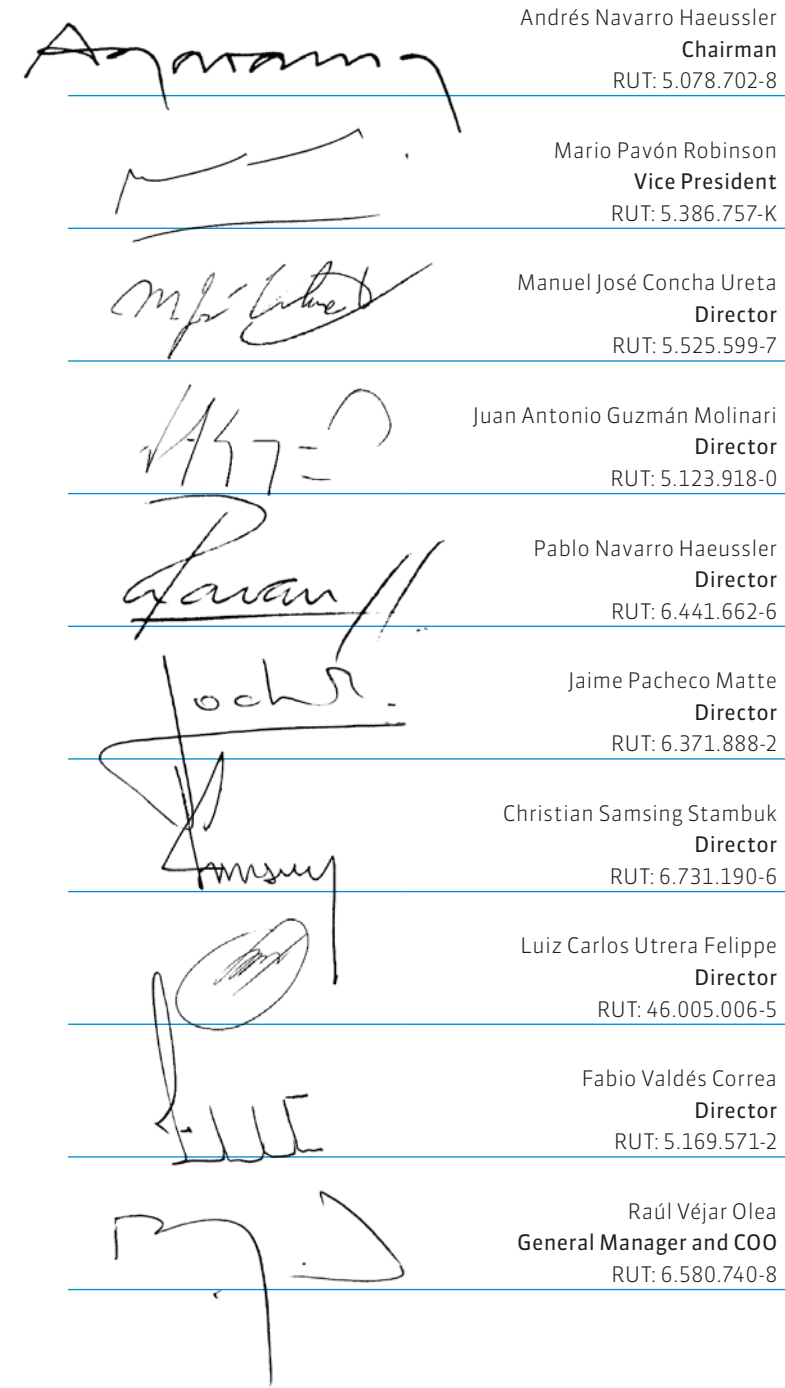 Andrés Navarro Haeussler
Chairman
RUT: 5.078.702-8
Mario Pavón Robinson
Vice President
RUT: 5.386.757-K
Manuel José Concha Ureta
Director
RUT: 5.525.599-7
Juan Antonio Guzmán Molinari
Director
RUT: 5.123.918-0
Pablo Navarro Haeussler
Director
RUT: 6.441.662-6
Jaime Pacheco Matte
Director
RUT: 6.371.888-2
Christian Samsing Stambuk
Director
RUT: 6.731.190-6
Luiz Carlos Utrera Felippe
Director
RUT: 46.005.006-5
Fabio Valdés Correa
Director
RUT: 5.169.571-2
Raúl Véjar Olea
General Manager and COO
RUT: 6.580.740-8